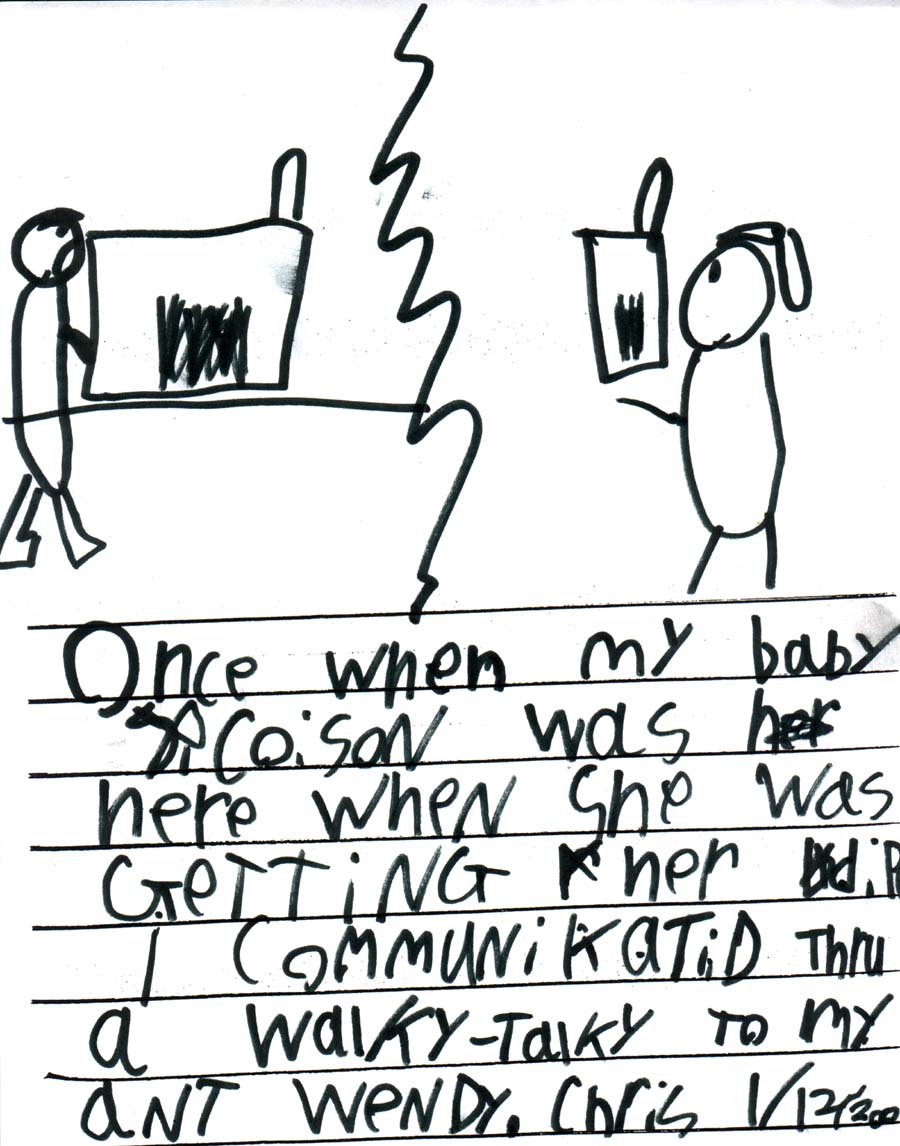 Once when my baby
coison was her
here when she was
GeTTiNG her
I COMMUNiKATiD Thru
a walKy-TalKy To my
aNT WeNDy. Chris 1/12/200